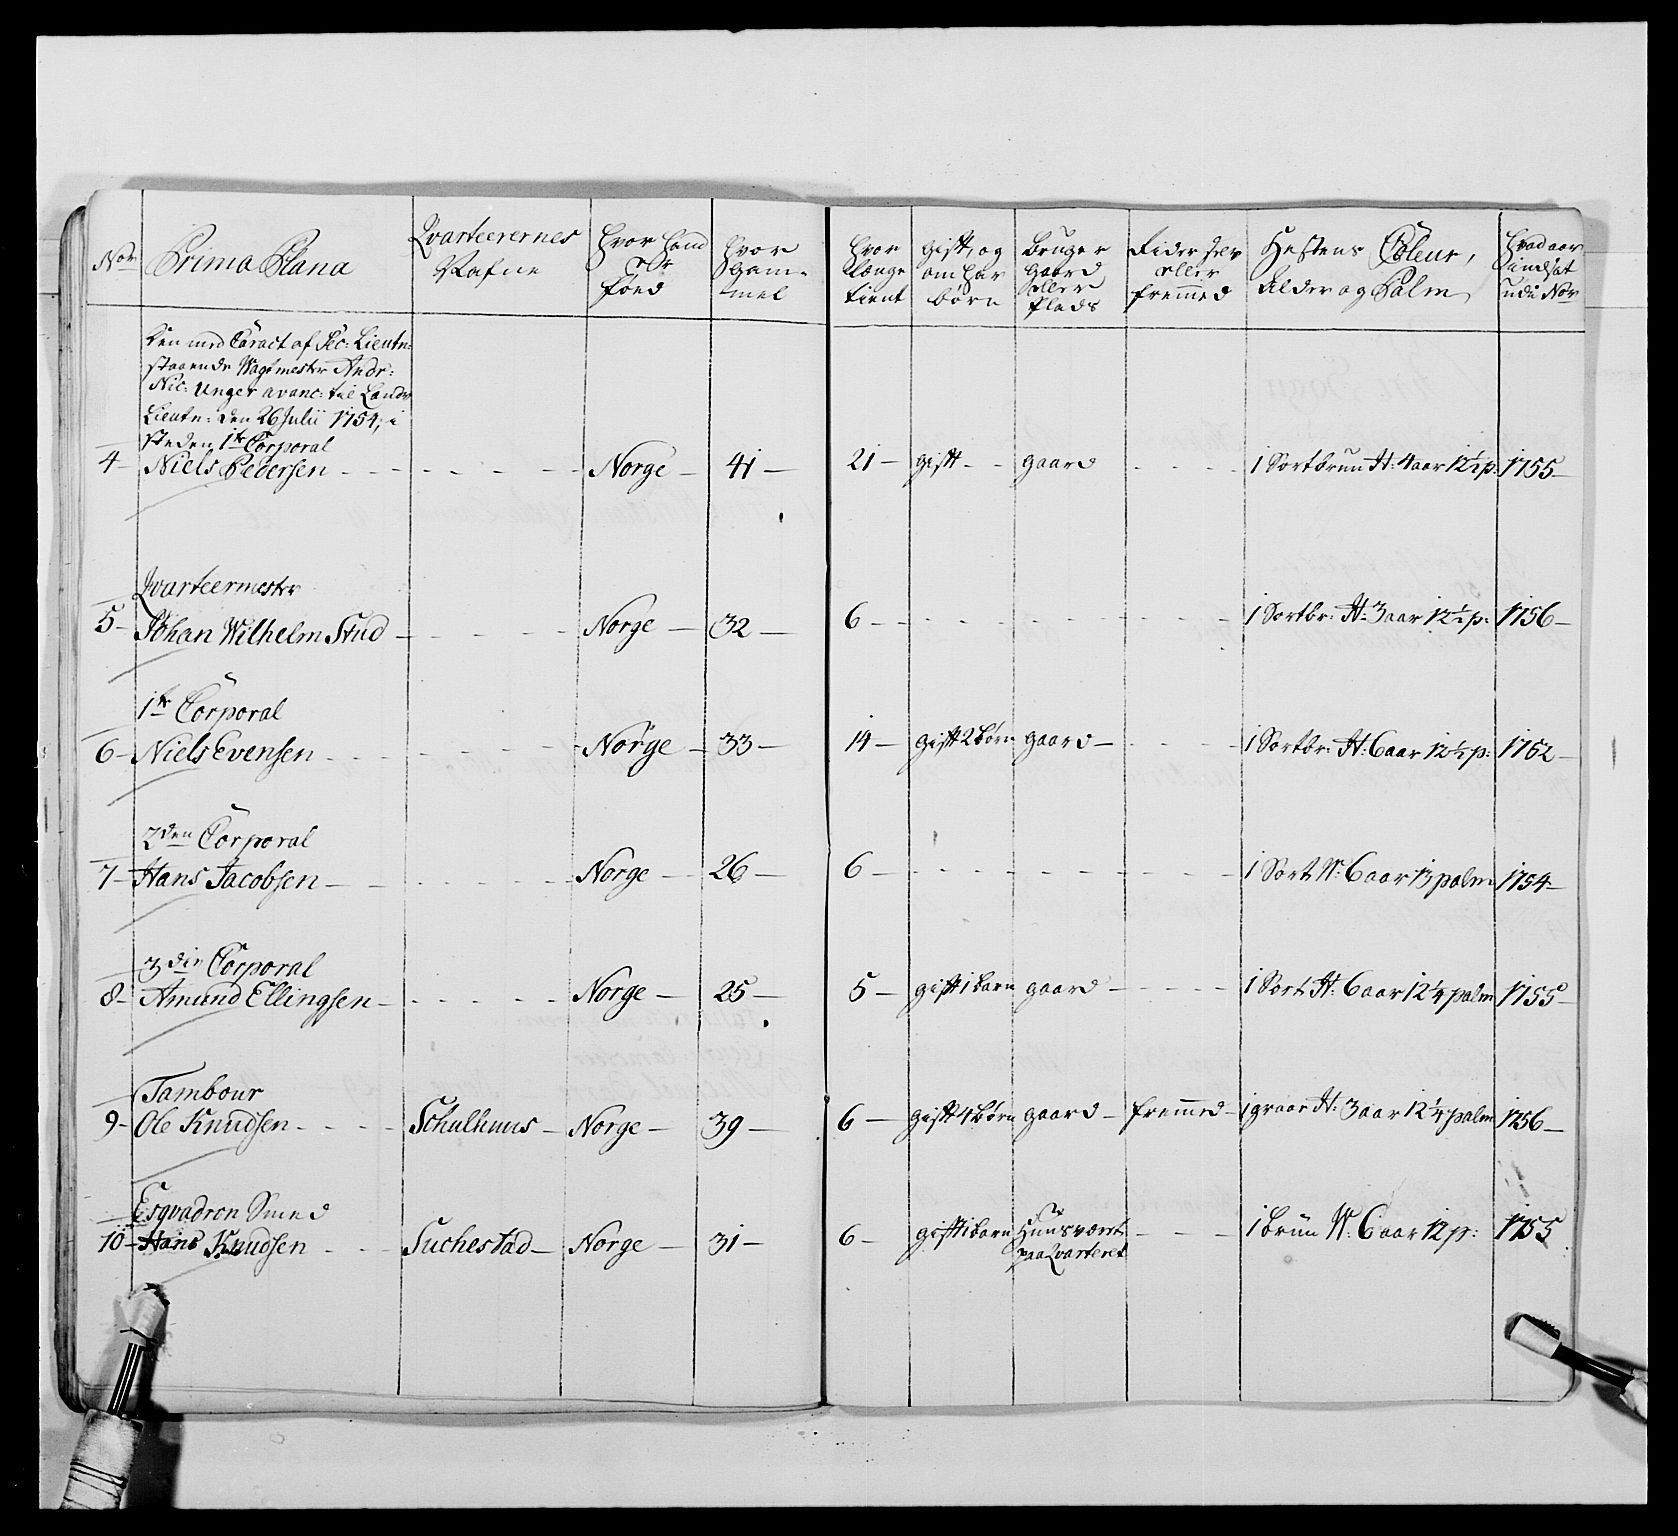 No͞r	Prima Plana	Qvarteerernes Nafne	Hvor hand er föed	Hvor Gam- mel	Hvor Længe tient	gift, og om har börn	Bruger gaard eller Plads	Rider self eller fremmed	Hestens Coleur, Alder og Palm	Hvad aar indsat udi No͞r
Den med Caract af Sec: Lieutn:
staaende Wagtmester Andr:
Nic: Unger avanc: til Landv
Lieutn: den 26 Julii 1754, i
steden 1te Corporal
4 - Niels Pedersen - - - - - - Norge - 41 - 21 - gift - - gaard - - - - 1 Sortbrun H: 4 aar 12½ p: 1755 -
Qvarteermester
5 - Johan Wilhelm Stud - - - - - Norge - 32 - 6 - - - - - - - - 1 Sortbr: H: 3 aar 12½ p: 1756 -
1te Corporal
6 - Niels Evensen - - - - - - Norge - 33 - 14 - gift 2 börn gaard - - - - 1 Sortbr: H: 6 aar 12½ p: 1752 -
2den Corporal
7 - Hans Jacobsen - - - - - - Norge - 26 - 6 - - - - - - - - 1 Sort W: 6 aar 13 palm 1754 -
3die Corporal
8 - Amund Ellingsen - - - - - Norge - 25 - 5 - gift 1 barn gaard - - - - 1 Sort H: 6 aar 12¼ palm 1755 -
Tambour
9 - Ole Knudsen - - - - Schulhuus - Norge - 39 - 6 - gift 4 börn gaard - fremmed - 1 graae H: 3 aar 12¼ palm 1756 -
Esqvadron Smed
10 - Hans Knudsen - - - Suchestad - Norge - 31 - 6 - gift 1 barn Huusvært - - - 1 brun W: 6 aar 12 p: 1755
paa Qvarteret